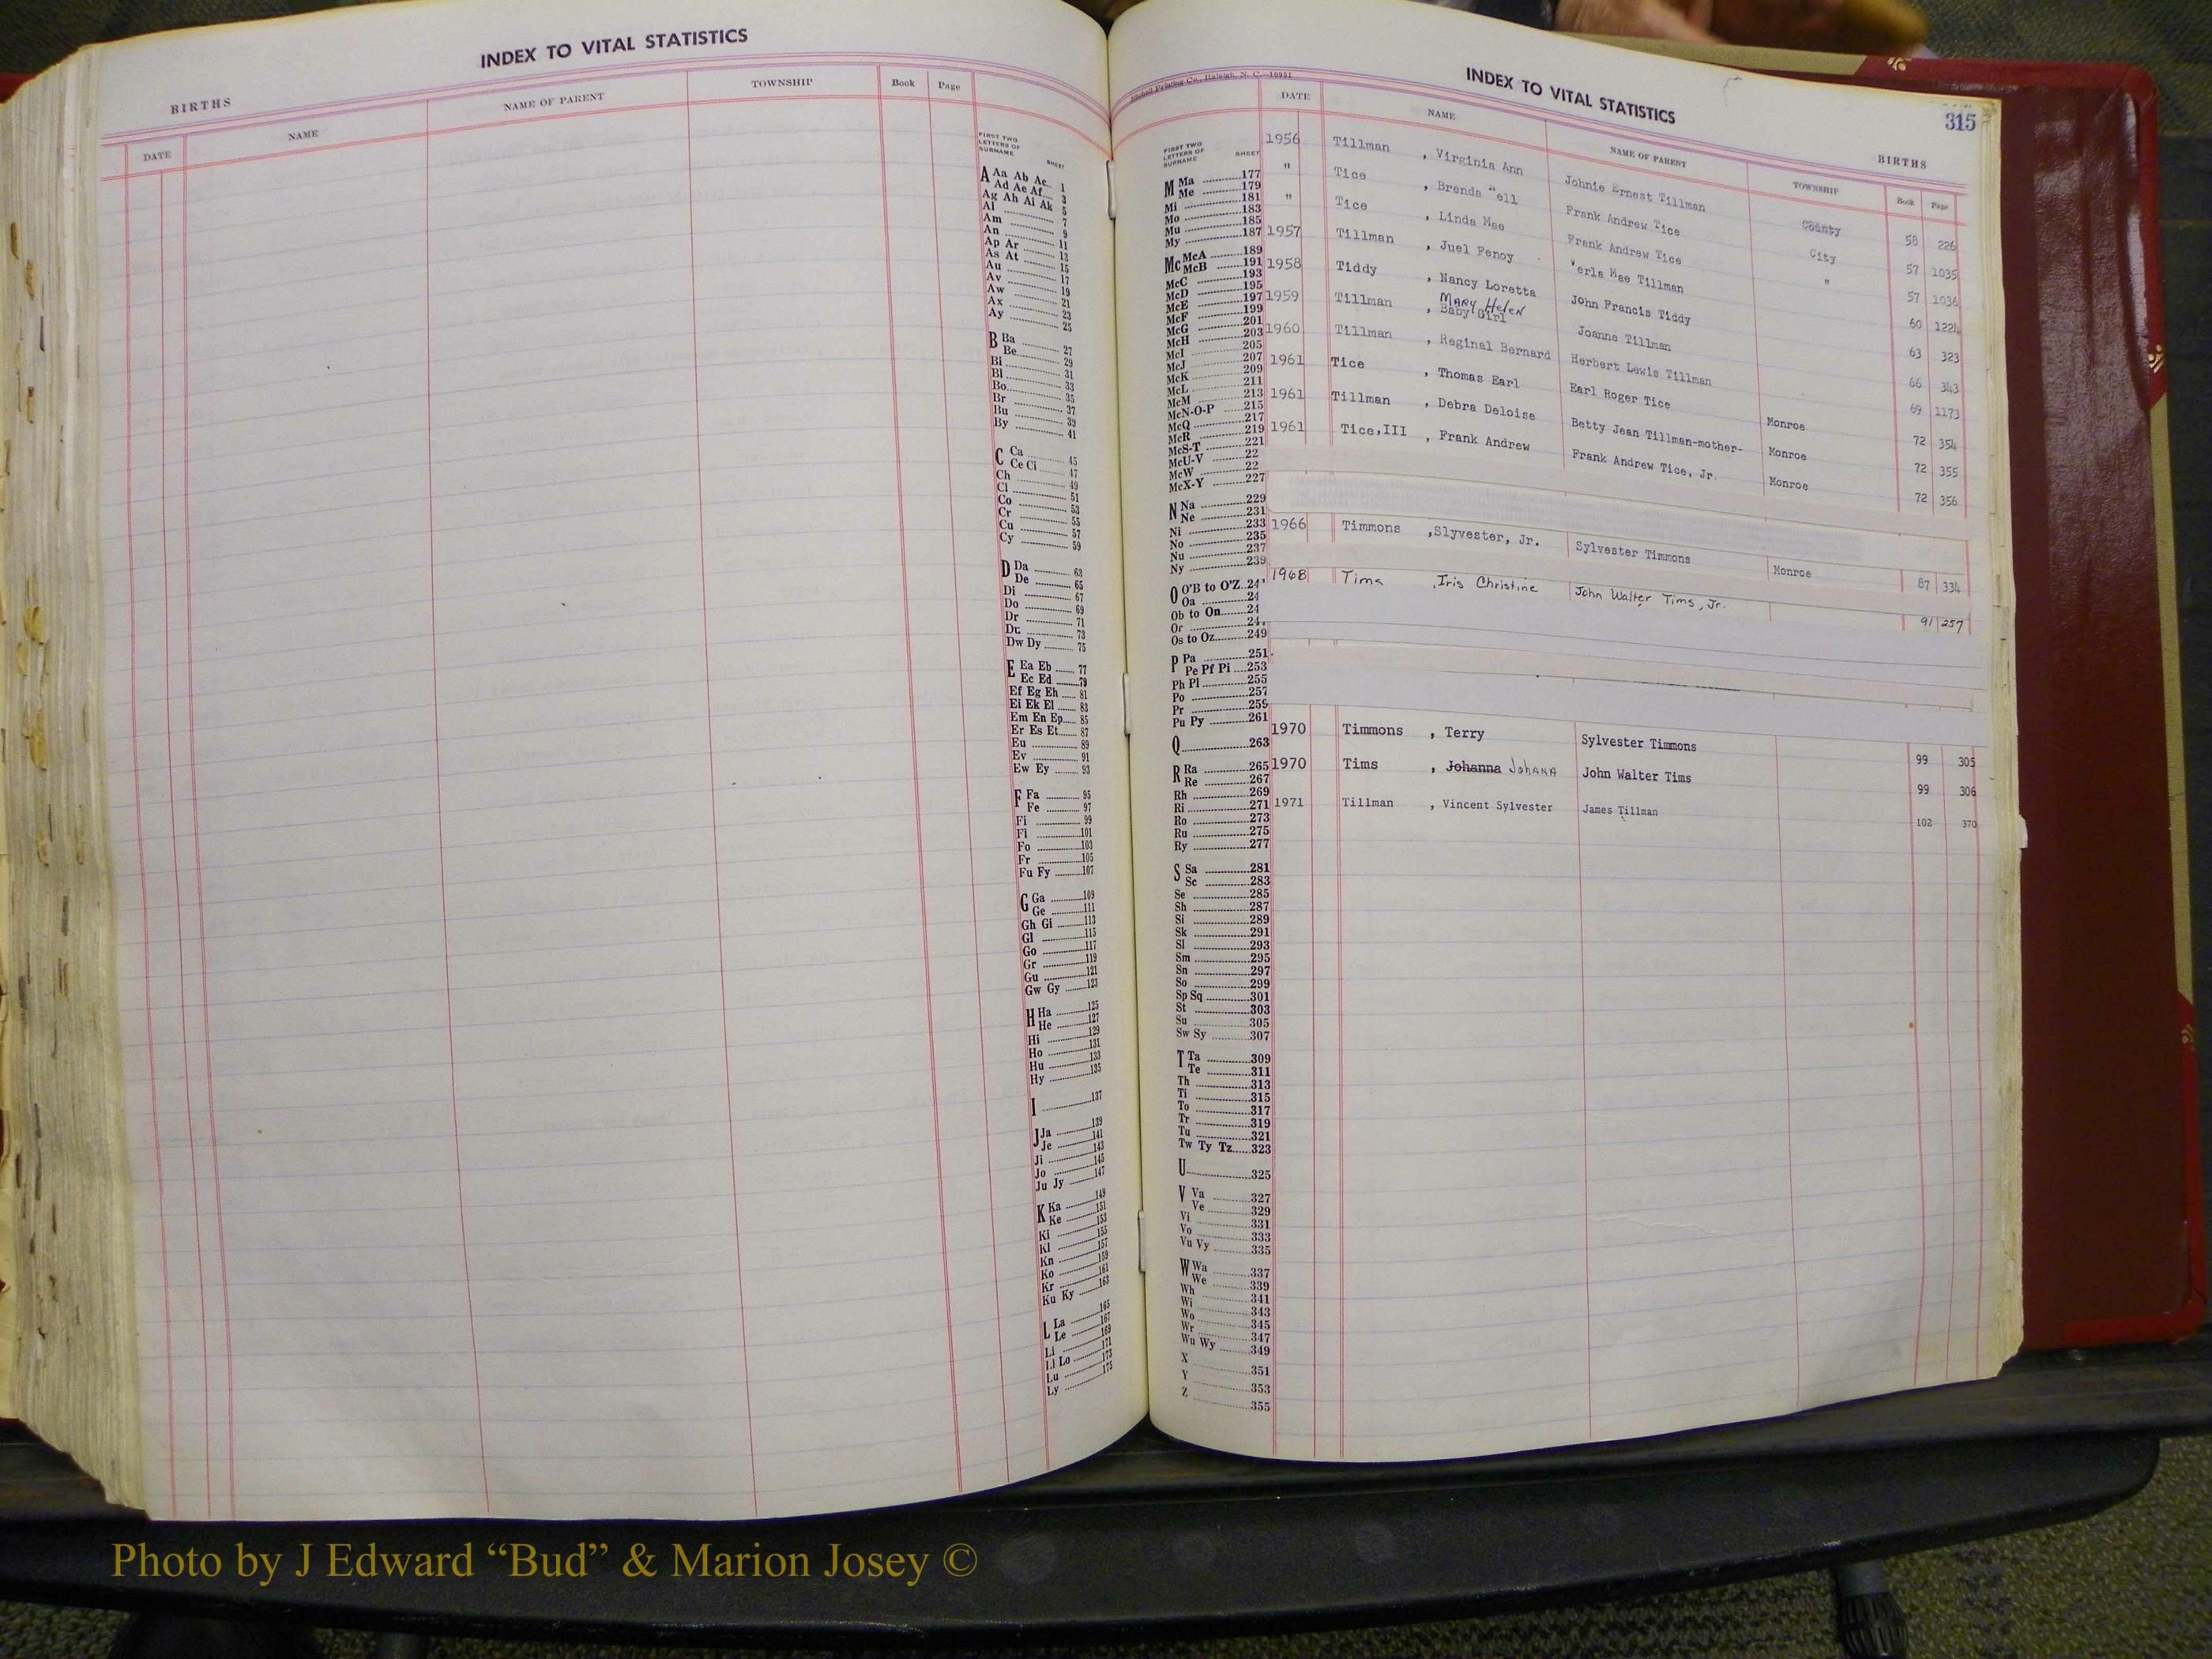 INDEX TO VITAL STATISTICS
BIRTHS
DATE NAME NAME OF PARENT TOWNSHIP Book Page
FIRST TWO LETTERS OF SURNAME SHEET
A Aa Ab Ac 1
Ad Ae Af 3
Ag Ah Ai Ak 5
Al 7
Am 9
An 11
Ap Ar 13
As At 15
Au 17
Av 19
Aw 21
Ax 23
Ay 25
B Ba 27
Be 29
Bi 31
Bl 33
Bo 35
Br 37
Bu 39
By 41
C Ca 45
Ce Ci 47
Ch 49
Cl 51
Co 53
Cr 55
Cu 57
Cy 59
D Da 63
De 65
Di 67
Do 69
Dr 71
Du 73
Dw Dy 75
E Ea Eb 77
Ec Ed 79
Ef Eg Eh 81
Ei Ek El 83
Em En Ep 85
Er Es Et 87
Eu 89
Ev 91
Ew Ey 93
F Fa 95
Fe 97
Fi 99
Fl 101
Fo 103
Fr 105
Fu Fy 107
G Ga 109
Ge 111
Gh Gi 113
Gl 115
Go 117
Gr 119
Gu 121
Gw Gy 123
H Ha 125
He 127
Hi 129
Ho 131
Hu 133
Hy 135
I 137
J Ja 139
Je 141
Ji 143
Jo 145
Ju Jy 147
K Ka 149
Ke 151
Ki 153
Kl 155
Kn 157
Ko 159
Kr 161
Ku Ky 163
L La 165
Le 167
Li 169
Ll Lo 171
Lu 173
Ly 175
Mitchell Printing Co., Raleigh, N. C.—10951
INDEX TO VITAL STATISTICS
315
BIRTHS
DATE NAME NAME OF PARENT TOWNSHIP Book Page
FIRST TWO LETTERS OF SURNAME SHEET
M Ma 177
Me 179
Mi 181
Mo 183
Mu 185
My 187
Mc McA 189
McB 191
McC 193
McD 195
McE 197
McF 199
McG 201
McH 203
McI 205
McJ 207
McK 209
McL 211
McM 213
McN-O-P 215
McQ 217
McR 219
McS-T 221
McU-V 22
McW 22
McX-Y 227
N Na 229
Ne 231
Ni 233
No 235
Nu 237
Ny 239
O O'B to O'Z 24
Oa 24
Ob to On 24
Or 24
Os to Oz 249
P Pa 251
Pe Pf Pi 253
Ph Pl 255
Po 257
Pr 259
Pu Py 261
Q 263
R Ra 265
Re 267
Rh 269
Ri 271
Ro 273
Ru 275
Ry 277
S Sa 281
Sc 283
Se 285
Sh 287
Si 289
Sk 291
Sl 293
Sm 295
Sn 297
So 299
Sp Sq 301
St 303
Su 305
Sw Sy 307
T Ta 309
Te 311
Th 313
Ti 315
To 317
Tr 319
Tu 321
Tw Ty Tz 323
U 325
V Va 327
Ve 329
Vi 331
Vo 333
Vu Vy 335
W Wa 337
We 339
Wh 341
Wi 343
Wo 345
Wr 347
Wu Wy 349
X 351
Y 353
Z 355
1956 Tillman , Virginia Ann Johnie Ernest Tillman County 58 226
" Tice , Brenda Nell Frank Andrew Tice City 57 1035
" Tice , Linda Mae Frank Andrew Tice " 57 1036
1957 Tillman , Juel Fenoy Verla Mae Tillman 60 1224
1958 Tiddy , Nancy Loretta John Francis Tiddy 63 323
1959 Tillman , MARY HeleN Baby Girl Joanne Tillman 66 343
1960 Tillman , Reginal Bernard Herbert Lewis Tillman 69 1173
1961 Tice , Thomas Earl Earl Roger Tice Monroe 72 354
1961 Tillman , Debra Deloise Betty Jean Tillman-mother- Monroe 72 355
1961 Tice,III , Frank Andrew Frank Andrew Tice, Jr. Monroe 72 356
1966 Timmons ,Slyvester, Jr. Sylvester Timmons Monroe 87 334
1968 Tims , Iris Christine John Walter Tims, Jr. 91 257
1970 Timmons , Terry Sylvester Timmons 99 305
1970 Tims , Johanna JohANA John Walter Tims 99 306
1971 Tillman , Vincent Sylvester James Tillman 102 370
Photo by J Edward “Bud” & Marion Josey ©